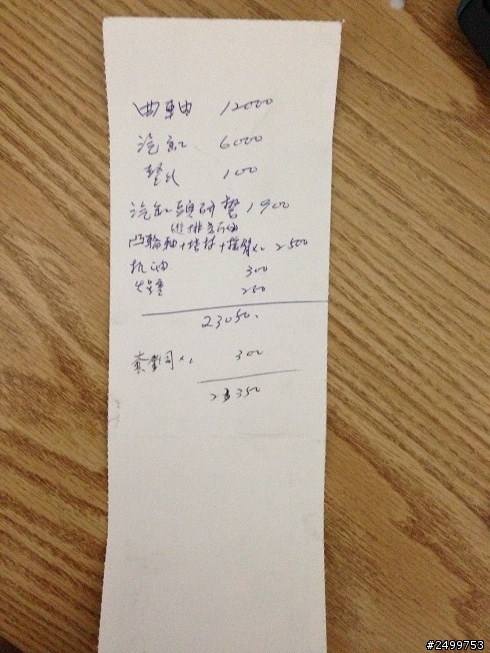 曲軸 12000
汽缸 6000
墊片 100
汽缸頭研磨 1900
進排氣
凸輪軸+搖臂x2 2500
机油 300
火星塞 250
23050.
套筒x2 300
23350
#2499753